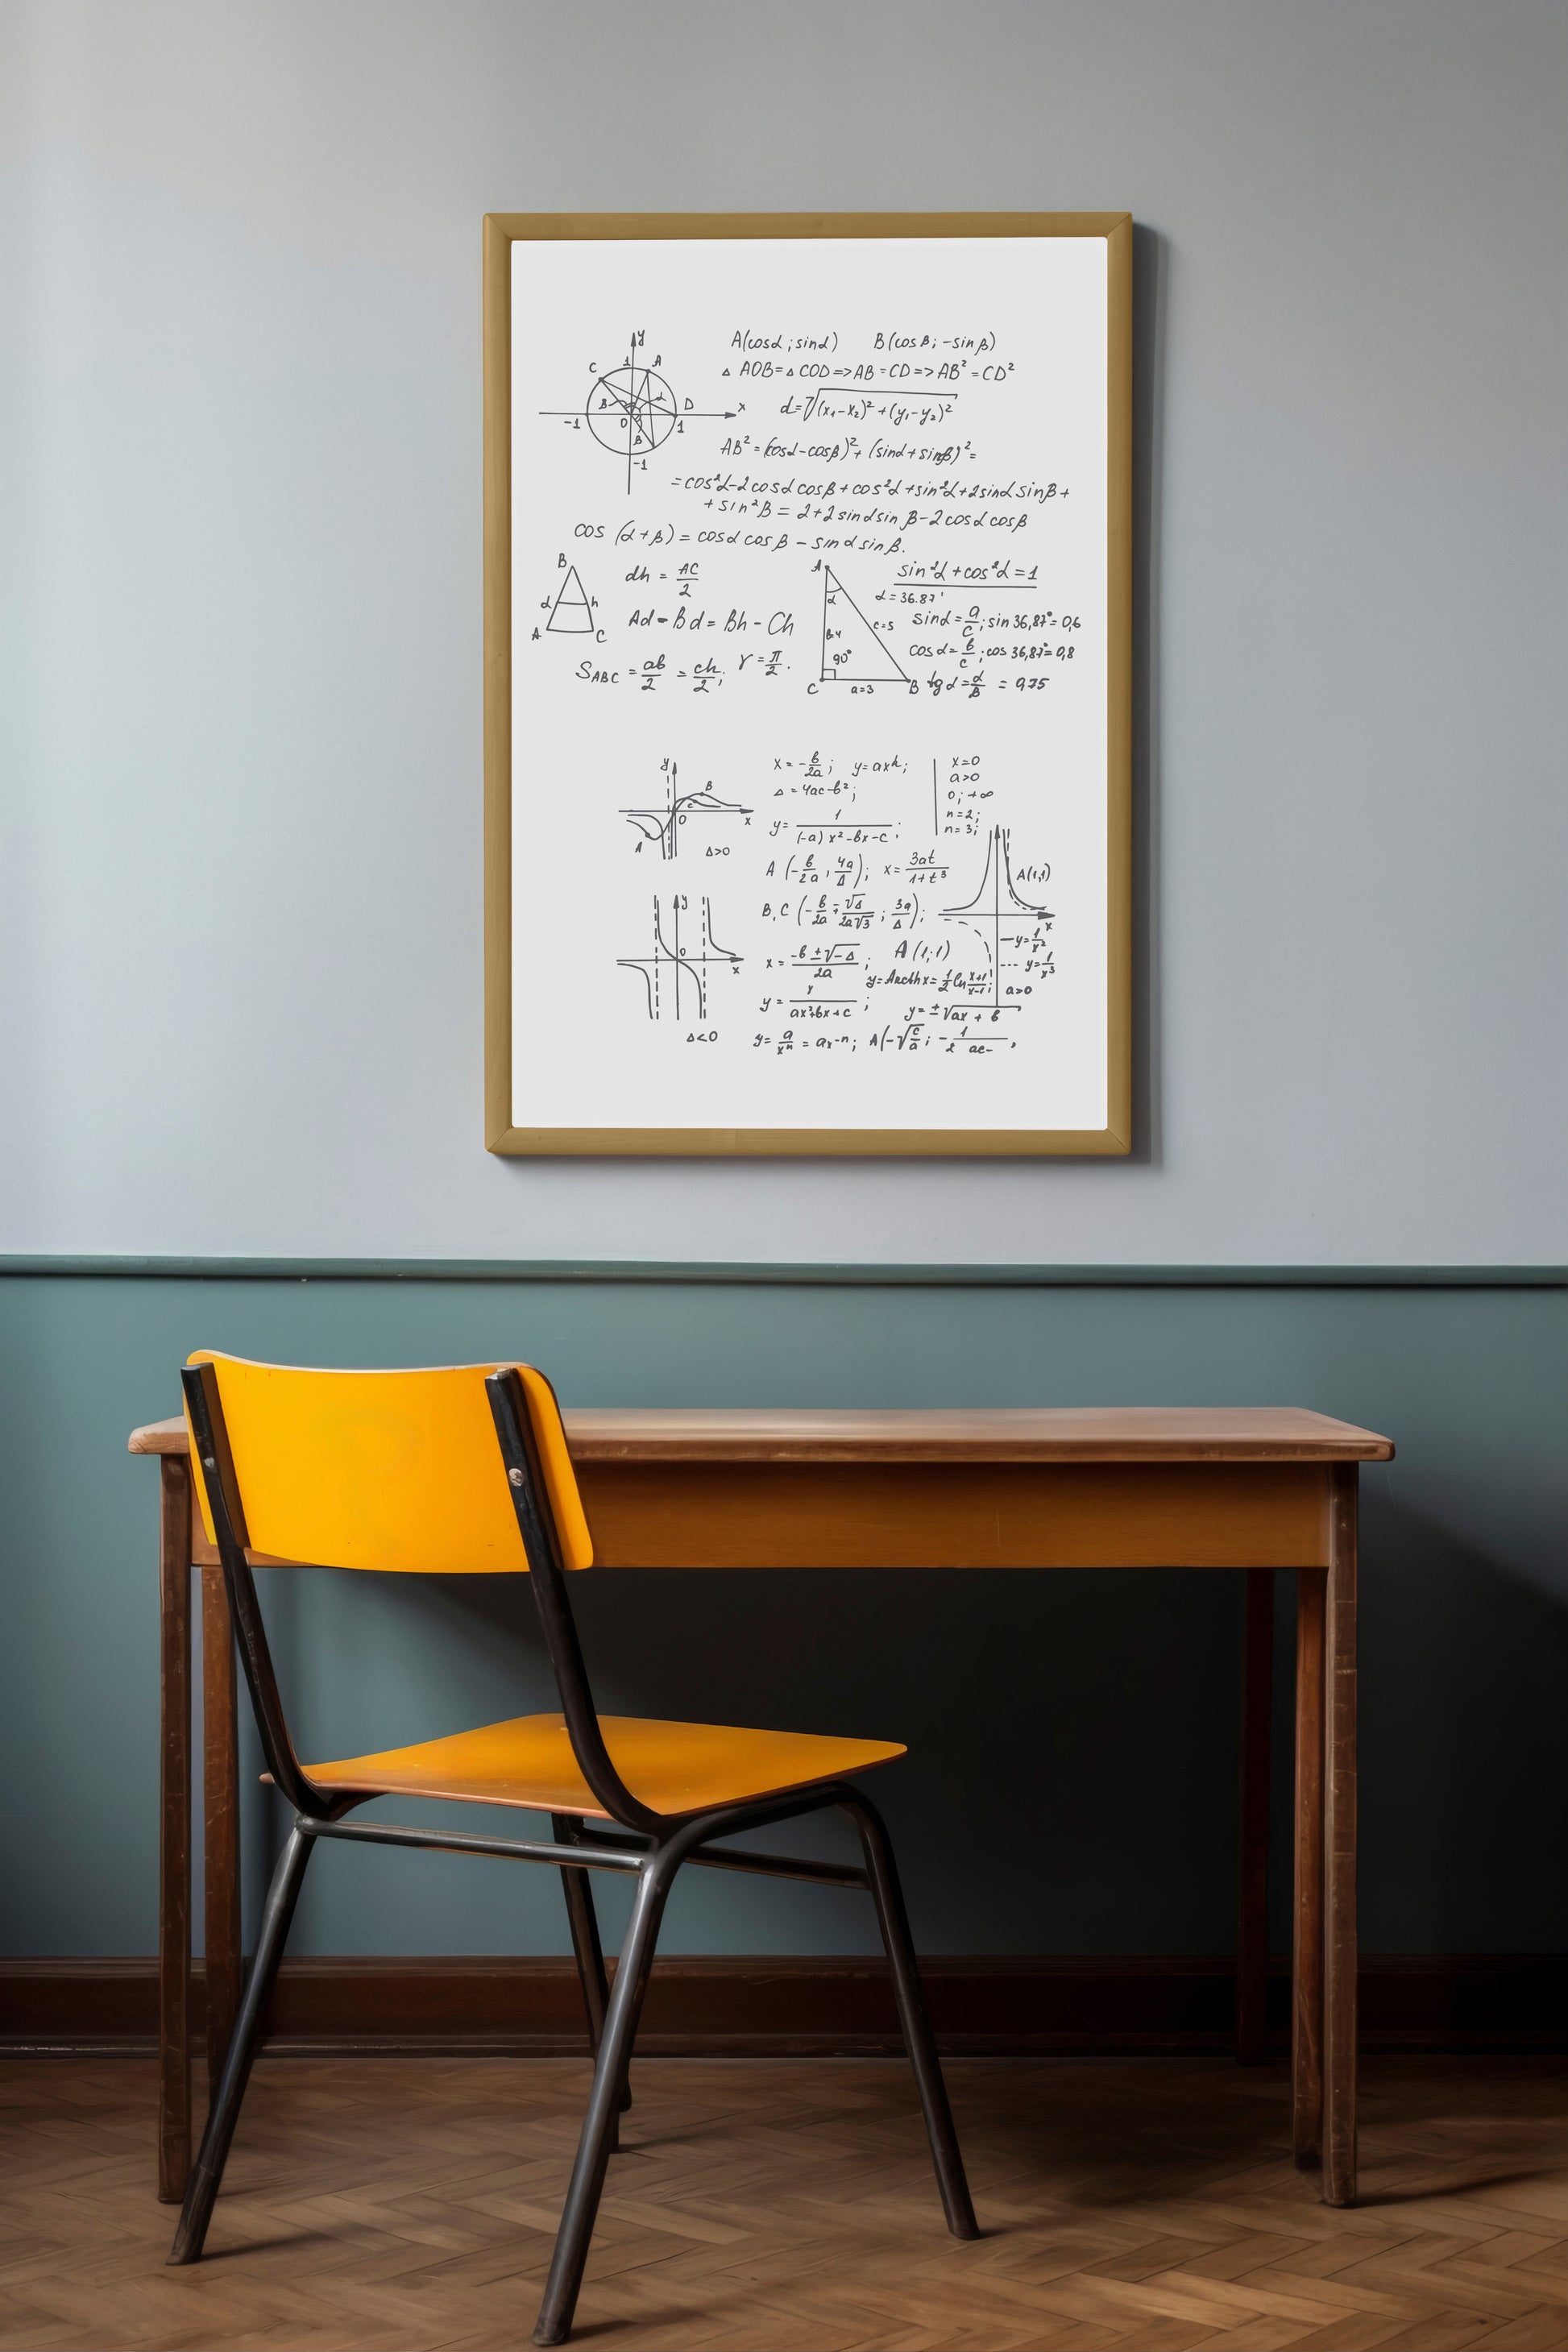 y
C 1 A
B α
-1 0 D x
B 1
-1
A(cosα; sinα) B(cosβ; -sinβ)
△ AOB = △ COD => AB = CD => AB² = CD²
d = √(x₁-x₂)² + (y₁-y₂)²
AB² = (cosα-cosβ)² + (sinα+sinβ)² =
= cos²α-2cosα cosβ + cos²α + sin²α + 2sinα sinβ +
+ sin²β = 2+2sinαsinβ-2cosα cosβ
cos (α+β) = cosα cosβ - sinα sinβ.
B
d h
A C
dh = AC/2
Ad = Bd = Bh - Ch
S_ABC = ab/2 = ch/2; γ = π/2.
A
α
b=4 c=5
90°
C a=3 B
sin²α + cos²α = 1
α = 36.87'
sinα = a/c; sin 36,87° = 0,6
cosα = b/c; cos 36,87° = 0,8
tgα = α/B = 0,75
y
B
C
0 x
A
Δ>0
x = -b/2a; y = axⁿ;
Δ = 4ac-b²;
y = 1/((-a)x²-bx-c);
x=0
a>0
0; +∞
n=2;
n=3;
A (-b/2a, 4a/Δ); x = 3at/1+t³
B, C (-b/2a ∓ √Δ/2a√3; 3a/Δ);
x = -b±√-Δ/2a; A (1;1)
y = Arcth x = 1/2 ln x+1/x-1;
y = x/ax²+bx+c; y = ±√ax + b
y = a/xⁿ = ax⁻ⁿ; A(-√c/a; -1/2 ac-,
y
0
x
Δ<0
A(1,1)
x
y = 1/x²
y = 1/x³
a>0